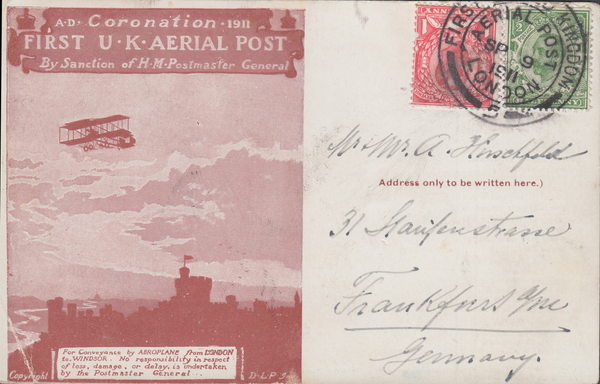 A·D· Coronation ·1911
FIRST U·K·AERIAL POST
By Sanction of H·M·Postmaster General
For Conveyance by AEROPLANE from LONDON
to WINDSOR. No responsibility in respect
of loss, damage, or delay, is undertaken
by the Postmaster General...
Copyright
FIRST UNITED KINGDOM
AERIAL POST
SP 9
1911
LONDON
Mr & Mr. A. Hirschfeld
Address only to be written here.)
31 Staufenstrasse
Frankfurt a/m
Germany.